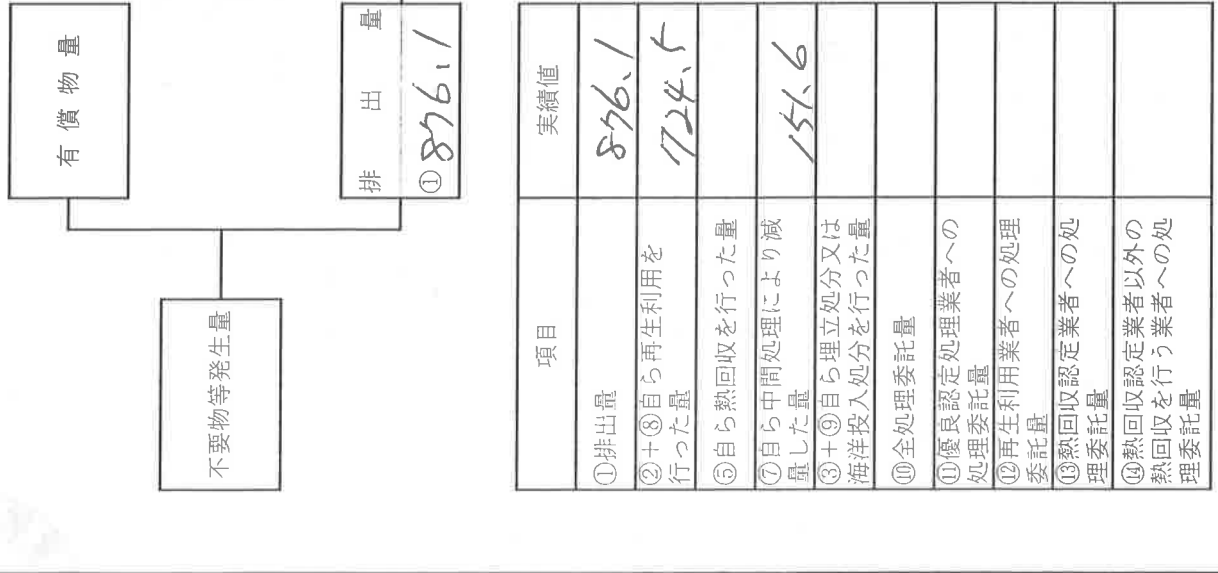 有償物量
不要物等発生量
排出量
①876.1
項目 実績値
①排出量 876.1
②+⑧自ら再生利用を
行った量 724.5
⑤自ら熱回収を行った量
⑦自ら中間処理により減
量した量 151.6
③+⑨自ら埋立処分又は
海洋投入処分を行った量
⑩全処理委託量
⑪優良認定処理業者への
処理委託量
⑫再生利用業者への処理
委託量
⑬熱回収認定業者への処
理委託量
⑭熱回収認定業者以外の
熱回収を行う業者への処
理委託量